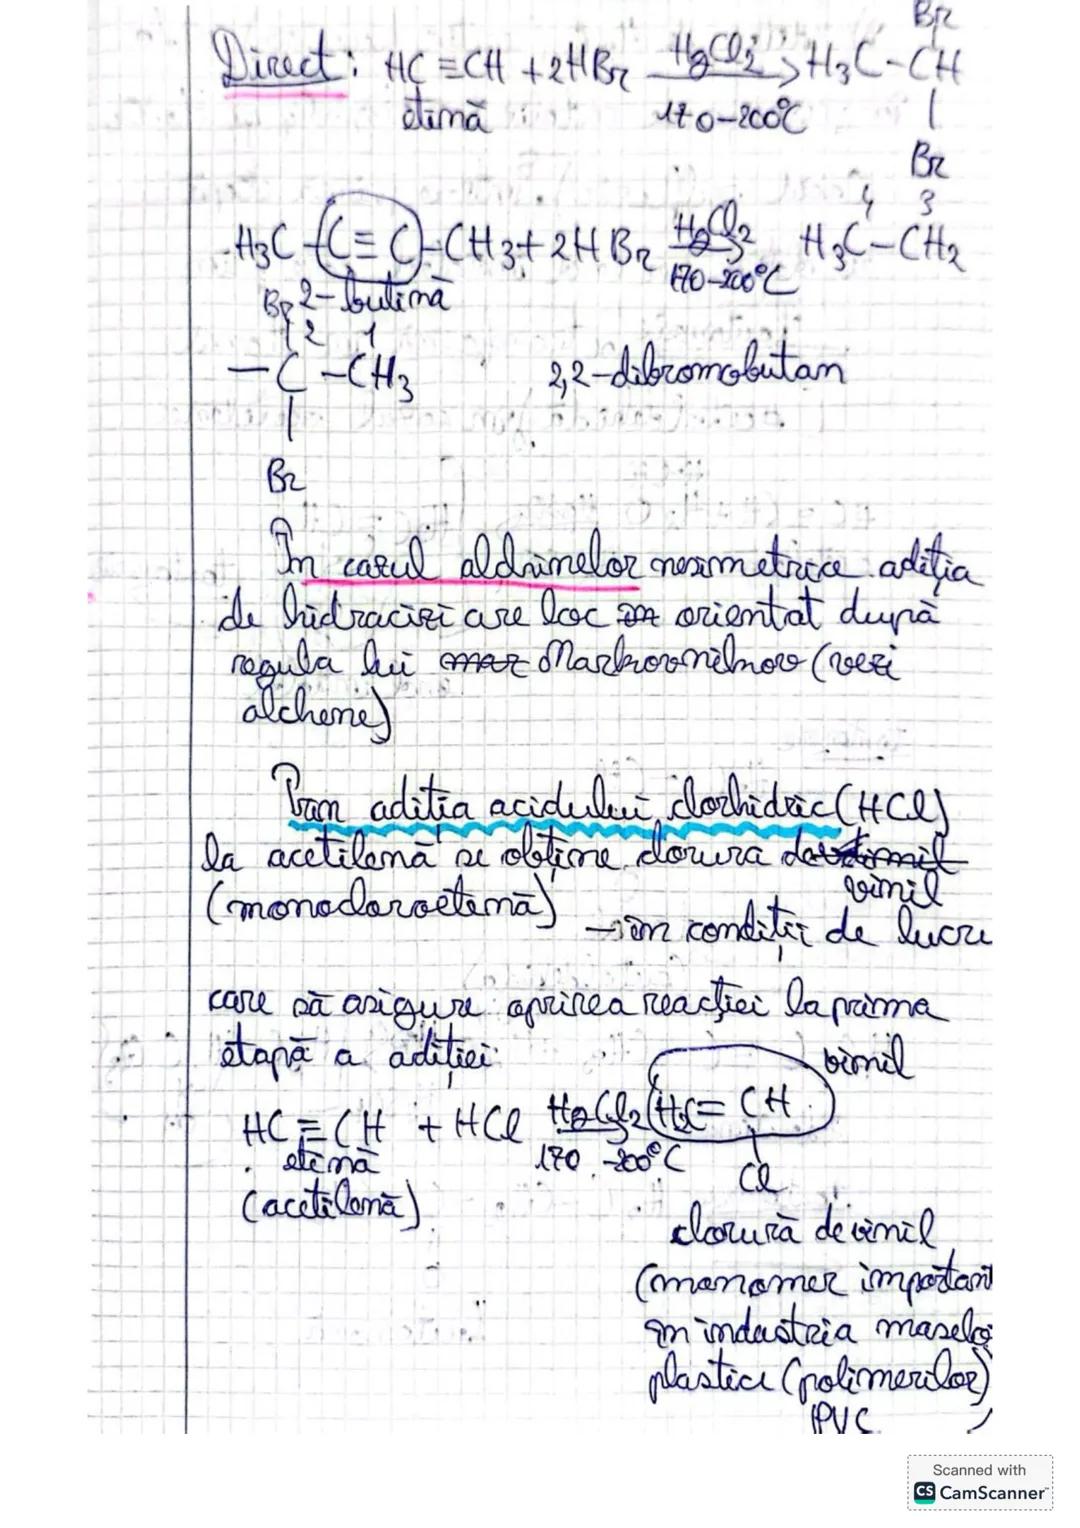 Br
Direct: HC≡CH + 2HBr HgCl2 → H3C-CH
etină 170-200°C |
Br
4 3
H3C-C≡C-CH3 + 2HBr HgCl2 → H3C-CH2
2-butină 170-200°C
Br
| 2 1
-C-CH3 2,2-dibromobutan
|
Br
În cazul alchinelor nesimetrice adiția
de hidracizi are loc orientat după
regula lui Markovnikov (vezi
alchene)
Prin aditia acidului clorhidric (HCl)
la acetilenă se obține clorura de
vinil
(monocloroetenă)
→ în condiții de lucru
care să asigure oprirea reacției la prima
etapă a adiției
vinil
HC≡CH + HCl HgCl2 → H2C=CH
etină 170-200°C |
(acetilenă) Cl
clorură de vinil
(monomer important
în industria maselor
plastice (polimerilor)
PVC
Scanned with
CS CamScanner